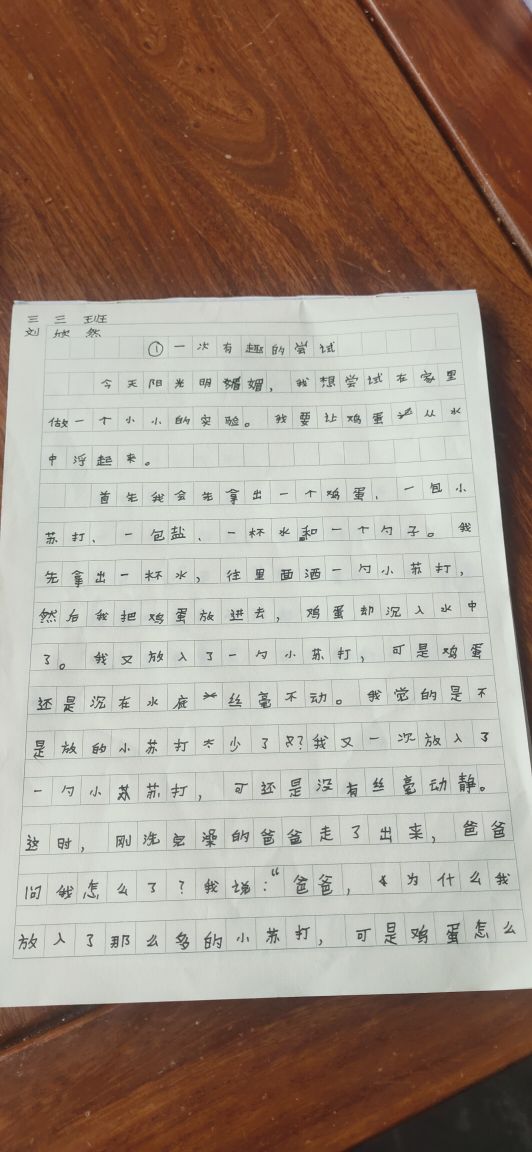 三 三 班
刘 欣 然
①一次有趣的尝试
今天阳光明媚媚，我想尝试在家里
做一个小小的实验。我要让鸡蛋从水
中浮起来。
首先我会先拿出一个鸡蛋、一包小
苏打、一包盐、一杯水和一个勺子。我
先拿出一杯水，往里面洒一勺小苏打，
然后我把鸡蛋放进去，鸡蛋却沉入水中
了。我又放入了一勺小苏打，可是鸡蛋
还是沉在水底丝毫不动。我觉的是不
是放的小苏打太少了?我又一次放入了
一勺小苏苏打，可还是没有丝毫动静。
这时，刚洗完澡的爸爸走了出来，爸爸
问我怎么了？我说：“爸爸，为什么我
放入了那么多的小苏打，可是鸡蛋怎么